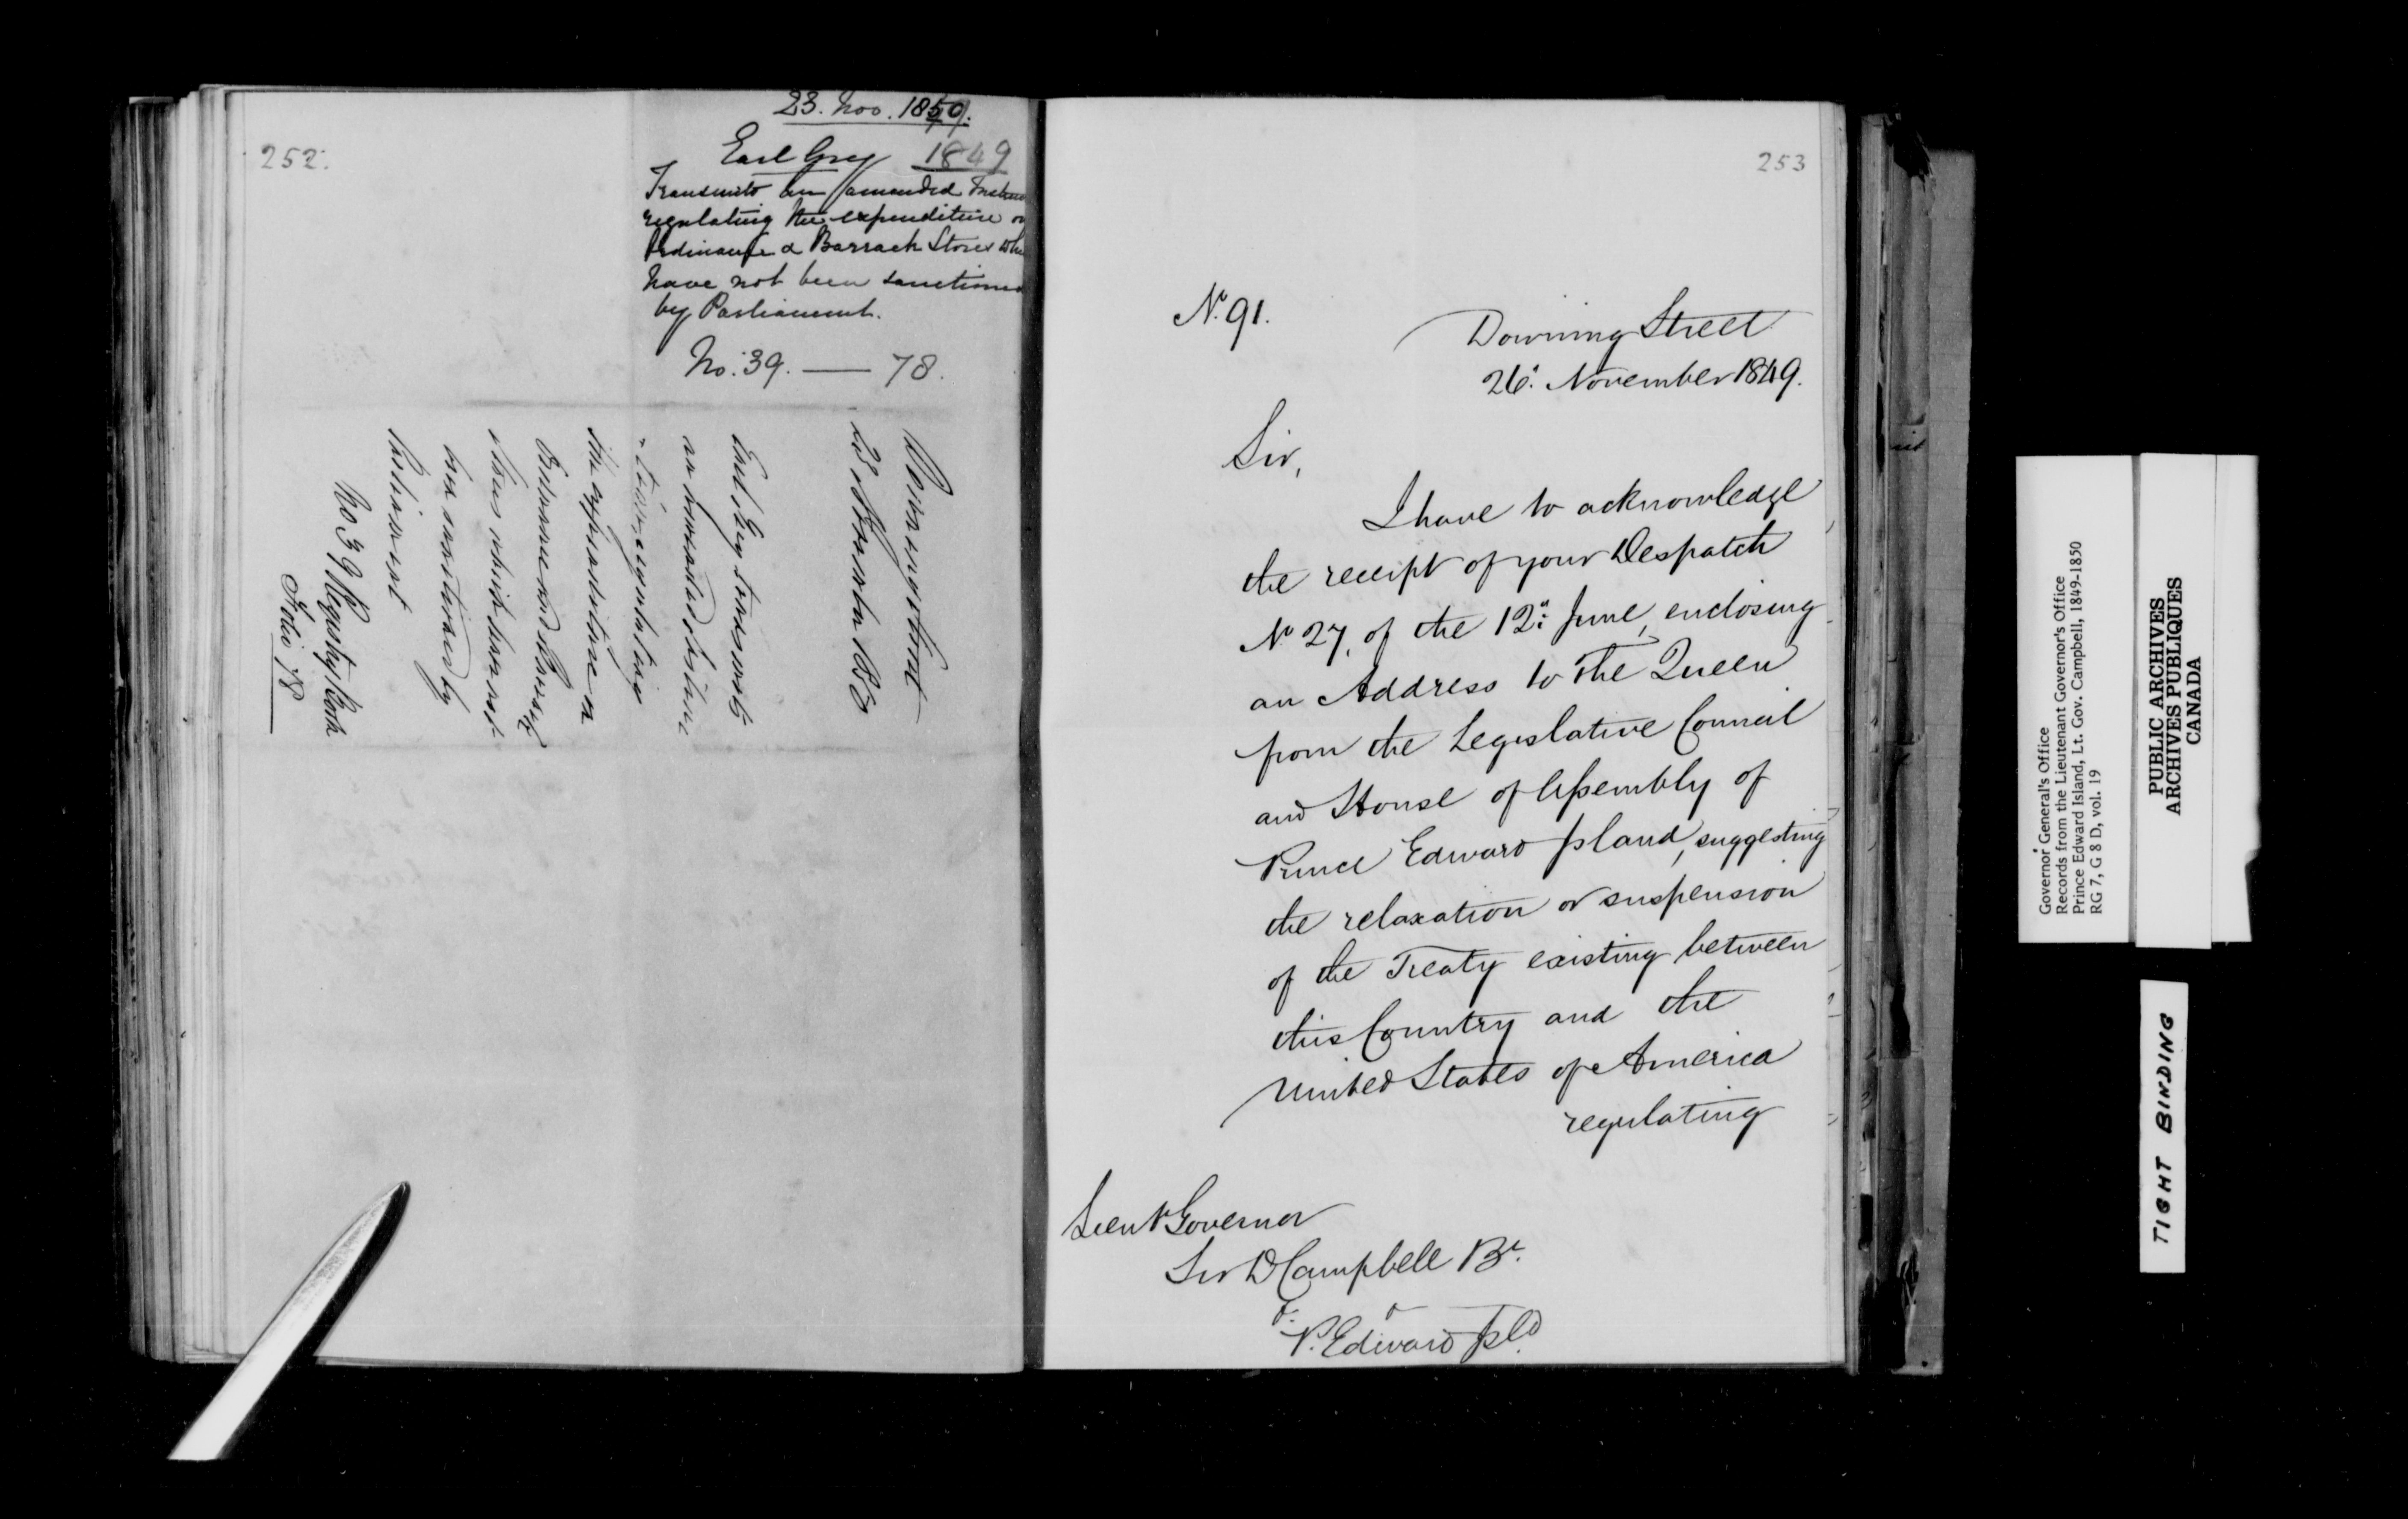 252.
23. Nov. 1850.
Earl Grey 1849
Transmits an amended
regulating the expenditure
Ordinance & Barrack Stores
have not been sanctioned
by Parliament.
No. 39. — 78.
Downing Street
Earl Grey transmits
an amended
regulating
the expenditure
Ordnance and
Stores which have not
been sanctioned by
Parliament
No 39 Registry Book
Folio 78
253
No. 91.
Downing Street
26. November 1849.
Sir,
I have to acknowledge
the receipt of your Despatch
No 27, of the 12: June, enclosing
an Address to The Queen
from the Legislative Council
and House of Assembly of
Prince Edward Island, suggesting
the relaxation or suspension
of the Treaty existing between
this Country and the
United States of America
regulating
Lieut Governor
Sir D Campbell Bt.
P. Edward Isld.
Governor General's Office
Records from the Lieutenant Governor's Office
Prince Edward Island, Lt. Gov. Campbell, 1849-1850
RG 7, G 8 D, vol. 19
PUBLIC ARCHIVES
ARCHIVES PUBLIQUES
CANADA
TIGHT BINDING